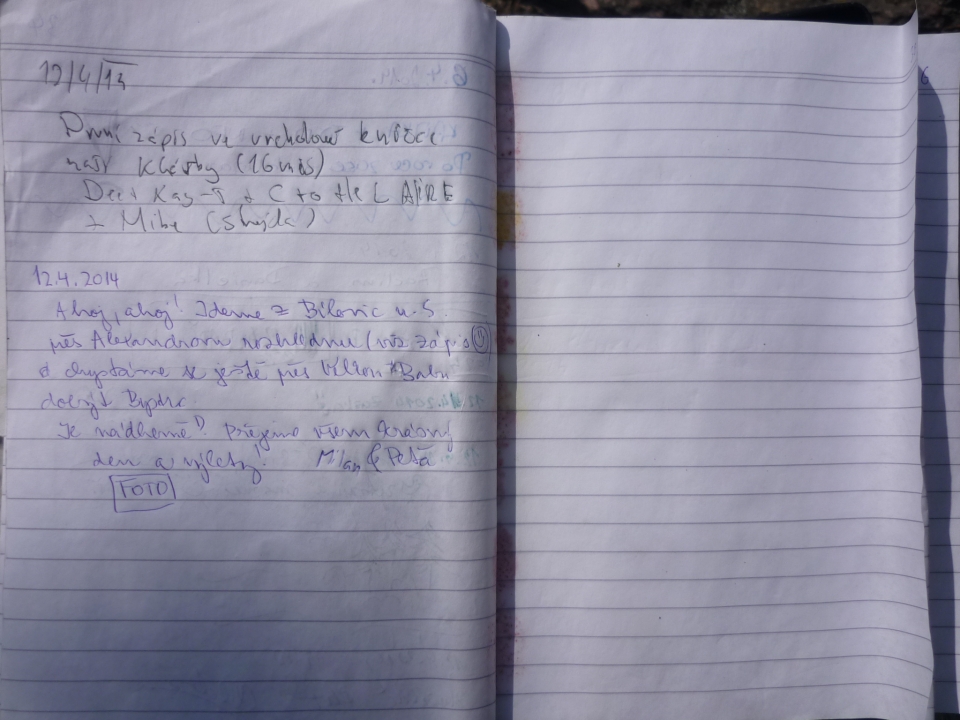 12/4/14
První zápis ve vrcholové knížce
naší Klárky (16 měs)
+ Mike
12.4.2014
Ahoj, ahoj! Jdeme z Bílovic n. S.
přes Alexandrovu rozhlednu (viz zápis
a chystáme se ještě přes Velkou Babu
dobýt Bystrc.
Je nádherně! Přejeme všem krásný
den a výlety! Milan & Peťa
FOTO